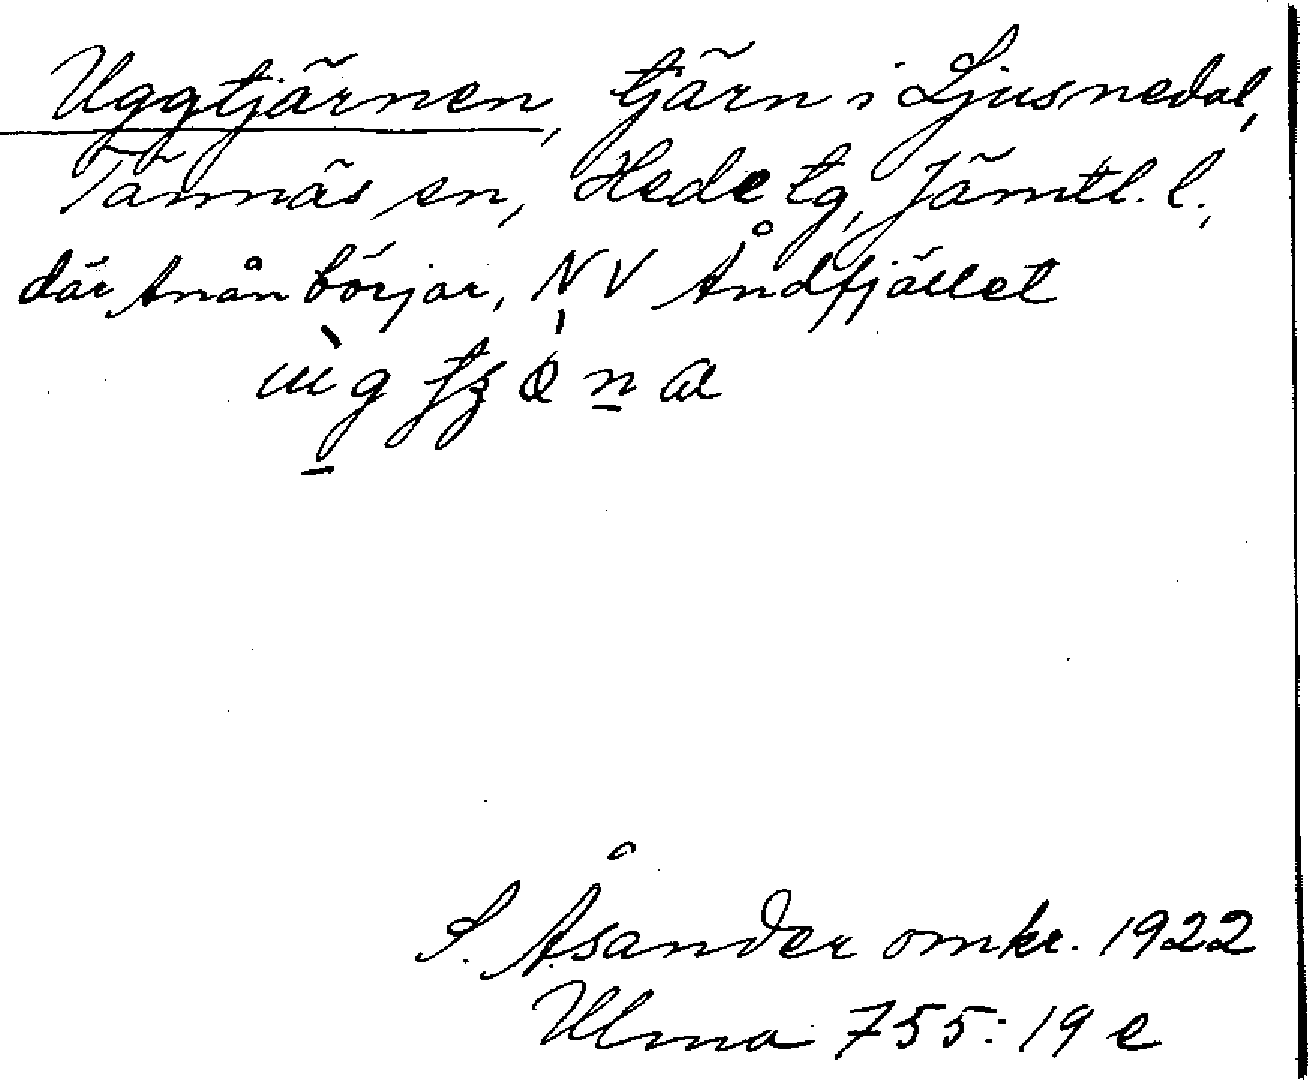 Uggtjärnen, tjärn i Ljusnedal,
Tännäs sn, Hede tg, Jämtl. l.,
där Anån börjar, NV Åndfjället
S. Åsander omkr. 1922
Ulma 755: 19 e